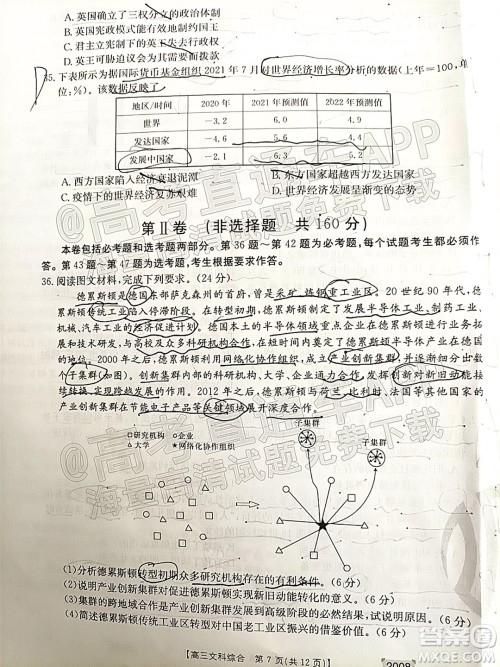 A. 英国确立了三权分立的政治体制
B. 英国君主立宪制尚需完善
C. 君主立宪制
D. 英王可迫协议会为其需要拨款
35. 下表所示为据国际货币基金组织2021年7月对世界经济增长率分析的数据(上年=100,单
位:%)。该数据反映了
地区/时间 2020年 2021年预测值 2022年预测值
世界 -3.2 6.0 4.9
发达国家 -4.6 5.6 4.4
发展中国家 -2.1 6.3 5.2
A. 西方国家陷入经济衰退泥潭 B. 东方国家超越西方发达国家
C. 世界经济复苏艰难 D. 世界经济发展呈增长态势
第Ⅱ卷 (非选择题 共160分)
本卷包括必考题和选考题两部分。第36题~第42题为必考题,每个试题考生都必须作
答。第43题~第47题为选考题,考生根据要求作答。
36. 阅读图文材料,完成下列要求。(24分)
德累斯顿是德国东部萨克森州的首府,曾是采矿、炼铜重工业区。20世纪90年代,德
累斯顿传统工业陷入停滞阶段。在转型初期,德累斯顿制定了发展半导体工业、制药工业、
机械、汽车工业的经济促进计划。德国本土的重点企业应半导体企业的需求,为半导体业务
拓展和技术研发,与高校及众多科研机构合作。德累斯顿逐步成为德国乃至欧洲半导体
的基地。2000年之后,德累斯顿利用网络化协作组织,构建起产业创新集群(内含多
个子集群)。创新集群内科研机构、大学、企业通力合作,创新对新旧动能接
续、实现跨越发展的作用。2012年之后,德累斯顿与荷兰、比利时、法国等其他国家的
产业创新集群在节能电子产品等关键领域开展深度合作。
子集群
子集群
□研究机构 ○企业
△大学 ★网络化协作组织
(1)分析德累斯顿转型初期众多研究机构存在的有利条件。(6分)
(2)说明产业创新集群对促进德累斯顿实现新旧动能接续的作用。(6分)
(3)集群的跨地域合作是产业创新集群发展到高级阶段的方向,试说明原因。(6分)
(4)简述德累斯顿传统工业区转型对中国老工业区振兴的借鉴价值。(6分)
【高三文科综合 第7页(共12页)】
2009